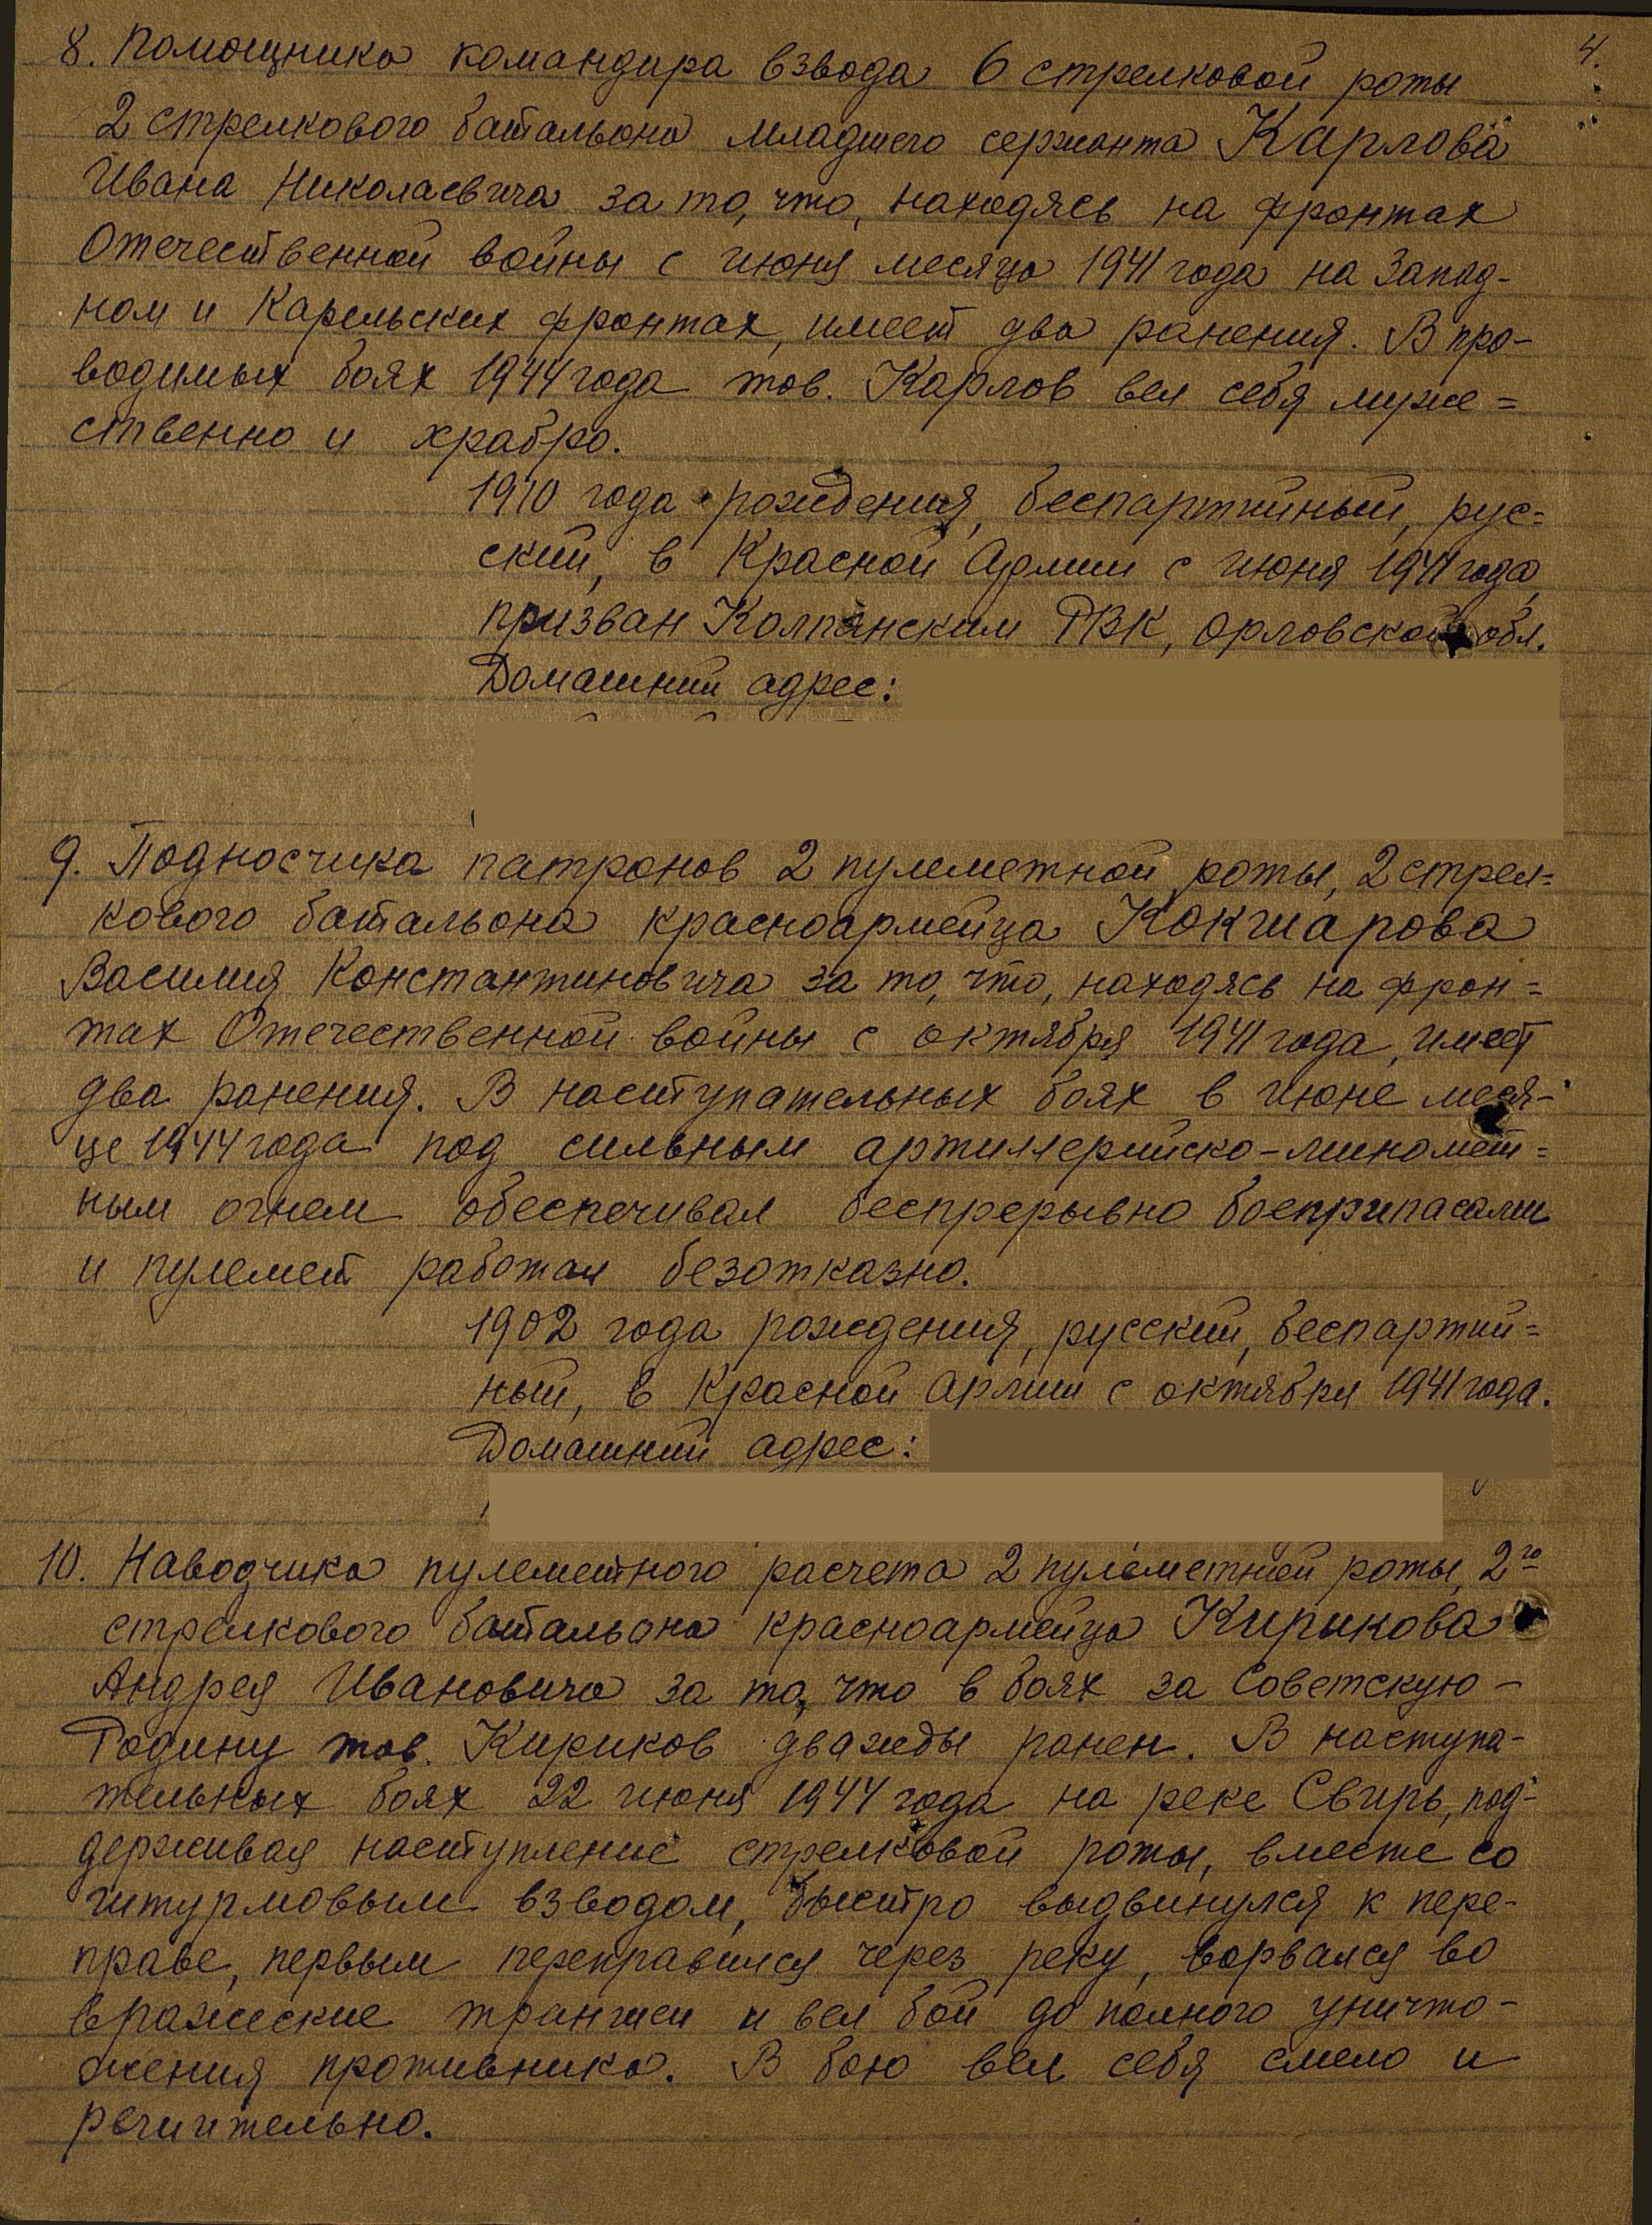 4.
8. Помощника командира взвода 6 стрелковой роты
2 стрелкового батальона младшего сержанта Карлова
Ивана Николаевича за то, что, находясь на фронтах
Отечественной войны с июня месяца 1941 года на Запад-
ном и Карельских фронтах, имеет два ранения. В про-
водимых боях 1944 года тов. Карлов вел себя муже=
ственно и храбро.
1910 года рождения, беспартийный, рус=
ский, в Красной Армии с июня 1941 года,
призван Колпанским РВК, Орловской обл.
Домашний адрес:
9. Подносчика патронов 2 пулеметной роты, 2 стрел=
кового батальона красноармейца Кокшарова
Василия Константиновича за то, что, находясь на фрон=
тах Отечественной войны с октября 1941 года, имеет
два ранения. В наступательных боях в июне меся-
це 1944 года под сильным артиллерийско-миномет=
ным огнем обеспечивал беспрерывно боеприпасами
и пулемет работал безотказно.
1902 года рождения, русский, беспартий=
ный, в Красной Армии с октября 1941 года.
Домашний адрес:
10. Наводчика пулеметного расчета 2 пулеметной роты, 2го
стрелкового батальона красноармейца Кирикова
Андрея Ивановича за то, что в боях за Советскую-
Родину тов. Кириков дважды ранен. В наступа-
тельных боях 22 июня 1944 года на реке Свирь, под-
держивая наступление стрелковой роты, вместе со
штурмовым взводом, быстро выдвинулся к пере-
праве, первым переправился через реку, ворвался во
вражеские траншеи и вел бой до полного уничто-
жения противника. В бою вел себя смело и
решительно.